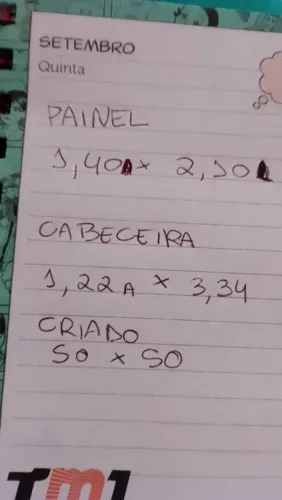 SETEMBRO
Quinta
PAINEL
1,40 x 2,10
CABECEIRA
1,22A x 3,34
CRIADO
50 x 50
TM1